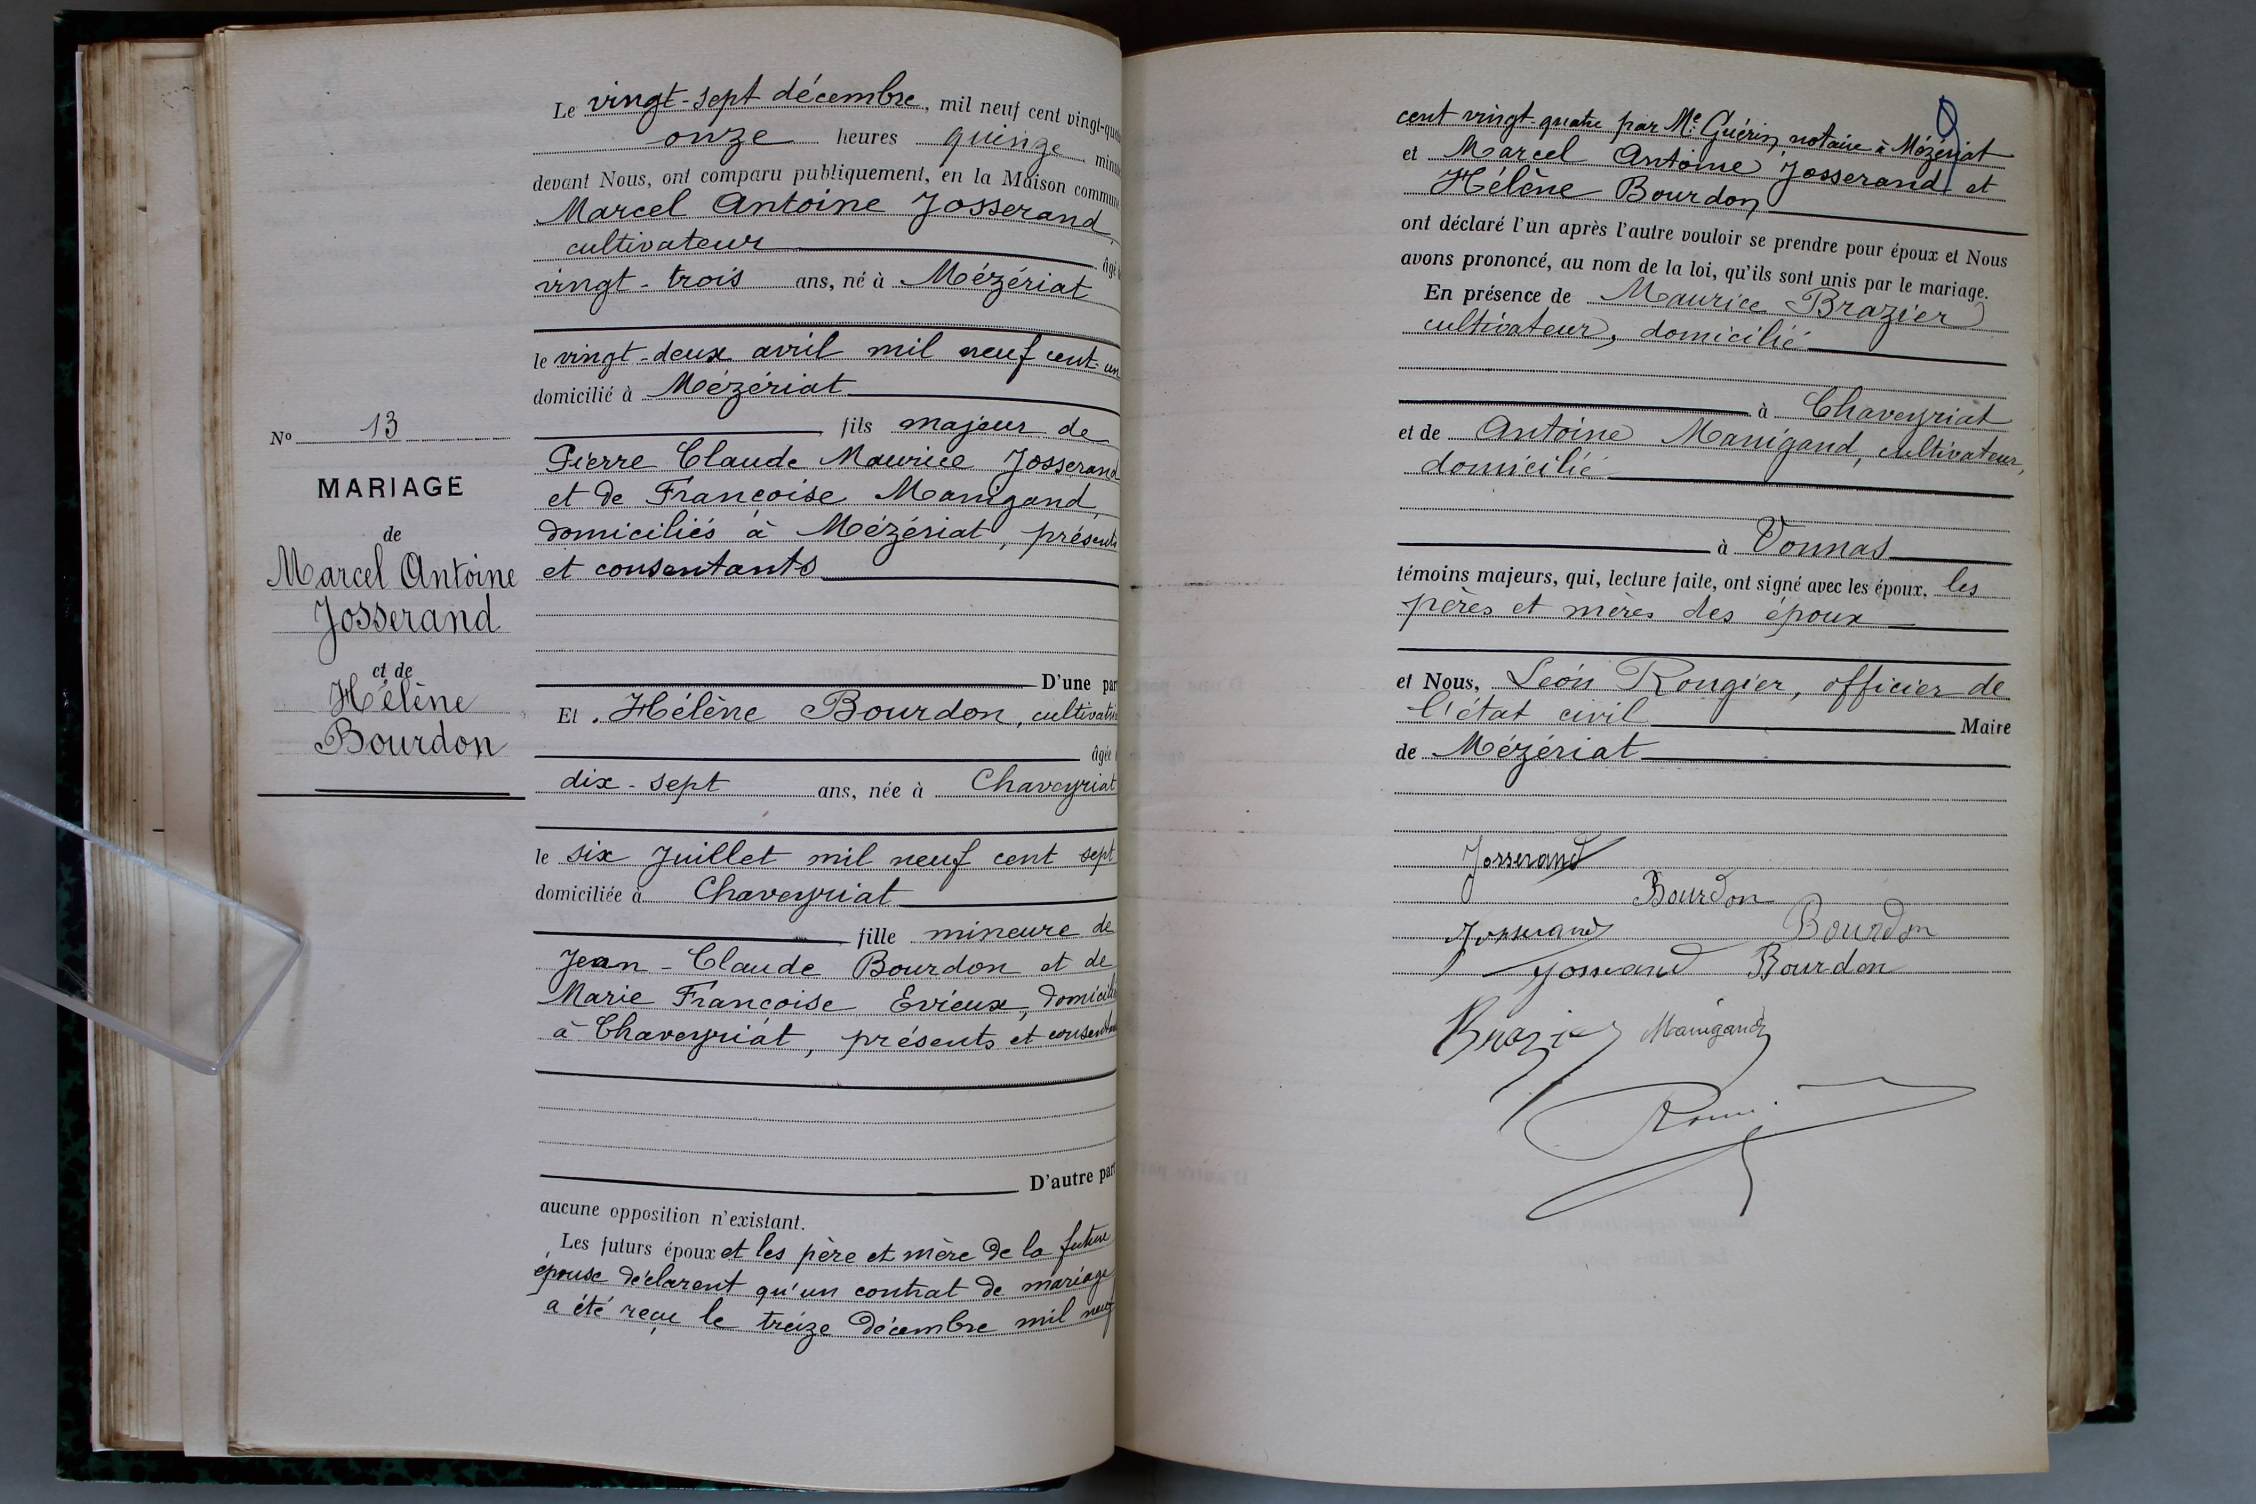 Le vingt-sept décembre, mil neuf cent vingt-qua
onze heures quinze minu
devant Nous, ont comparu publiquement, en la Maison commune
Marcel Antoine Josserand,
cultivateur âgé
vingt-trois ans, né à Mézériat
le vingt-deux avril mil neuf cent-un
domicilié à Mézériat
fils majeur de
Pierre Claude Maurice Josserand
et de Françoise Manigand,
domiciliés à Mézériat, présents
et consentants
D'une par
Et Hélène Bourdon, cultivatri
âgée
dix-sept ans, née à Chaveyriat
le six Juillet mil neuf cent sept
domiciliée à Chaveyriat
fille mineure de
Jean-Claude Bourdon et de
Marie Françoise Evieux, domicili
à Chaveyriat, présents et consent
D'autre part
aucune opposition n'existant.
Les futurs époux et les père et mère de la future
épouse déclarent qu'un contrat de mariage
a été reçu le treize décembre mil neuf
No 13
MARIAGE
de
Marcel Antoine
Josserand
et de
Hélène
Bourdon
cent vingt-quatre par Me Guérin, notaire à Mézériat
et Marcel Antoine Josserand et
Hélène Bourdon
ont déclaré l'un après l'autre vouloir se prendre pour époux et Nous
avons prononcé, au nom de la loi, qu'ils sont unis par le mariage.
En présence de Maurice Brazier
cultivateur, domicilié
à Chaveyriat
et de Antoine Manigand, cultivateur,
domicilié
à Vonnas
témoins majeurs, qui, lecture faite, ont signé avec les époux, les
pères et mères des époux
et Nous, Léon Rongier, officier de
l'état civil Maire
de Mézériat
Josserand
Bourdon
Josserand Bourdon
Josserand Bourdon
Brazier Manigand